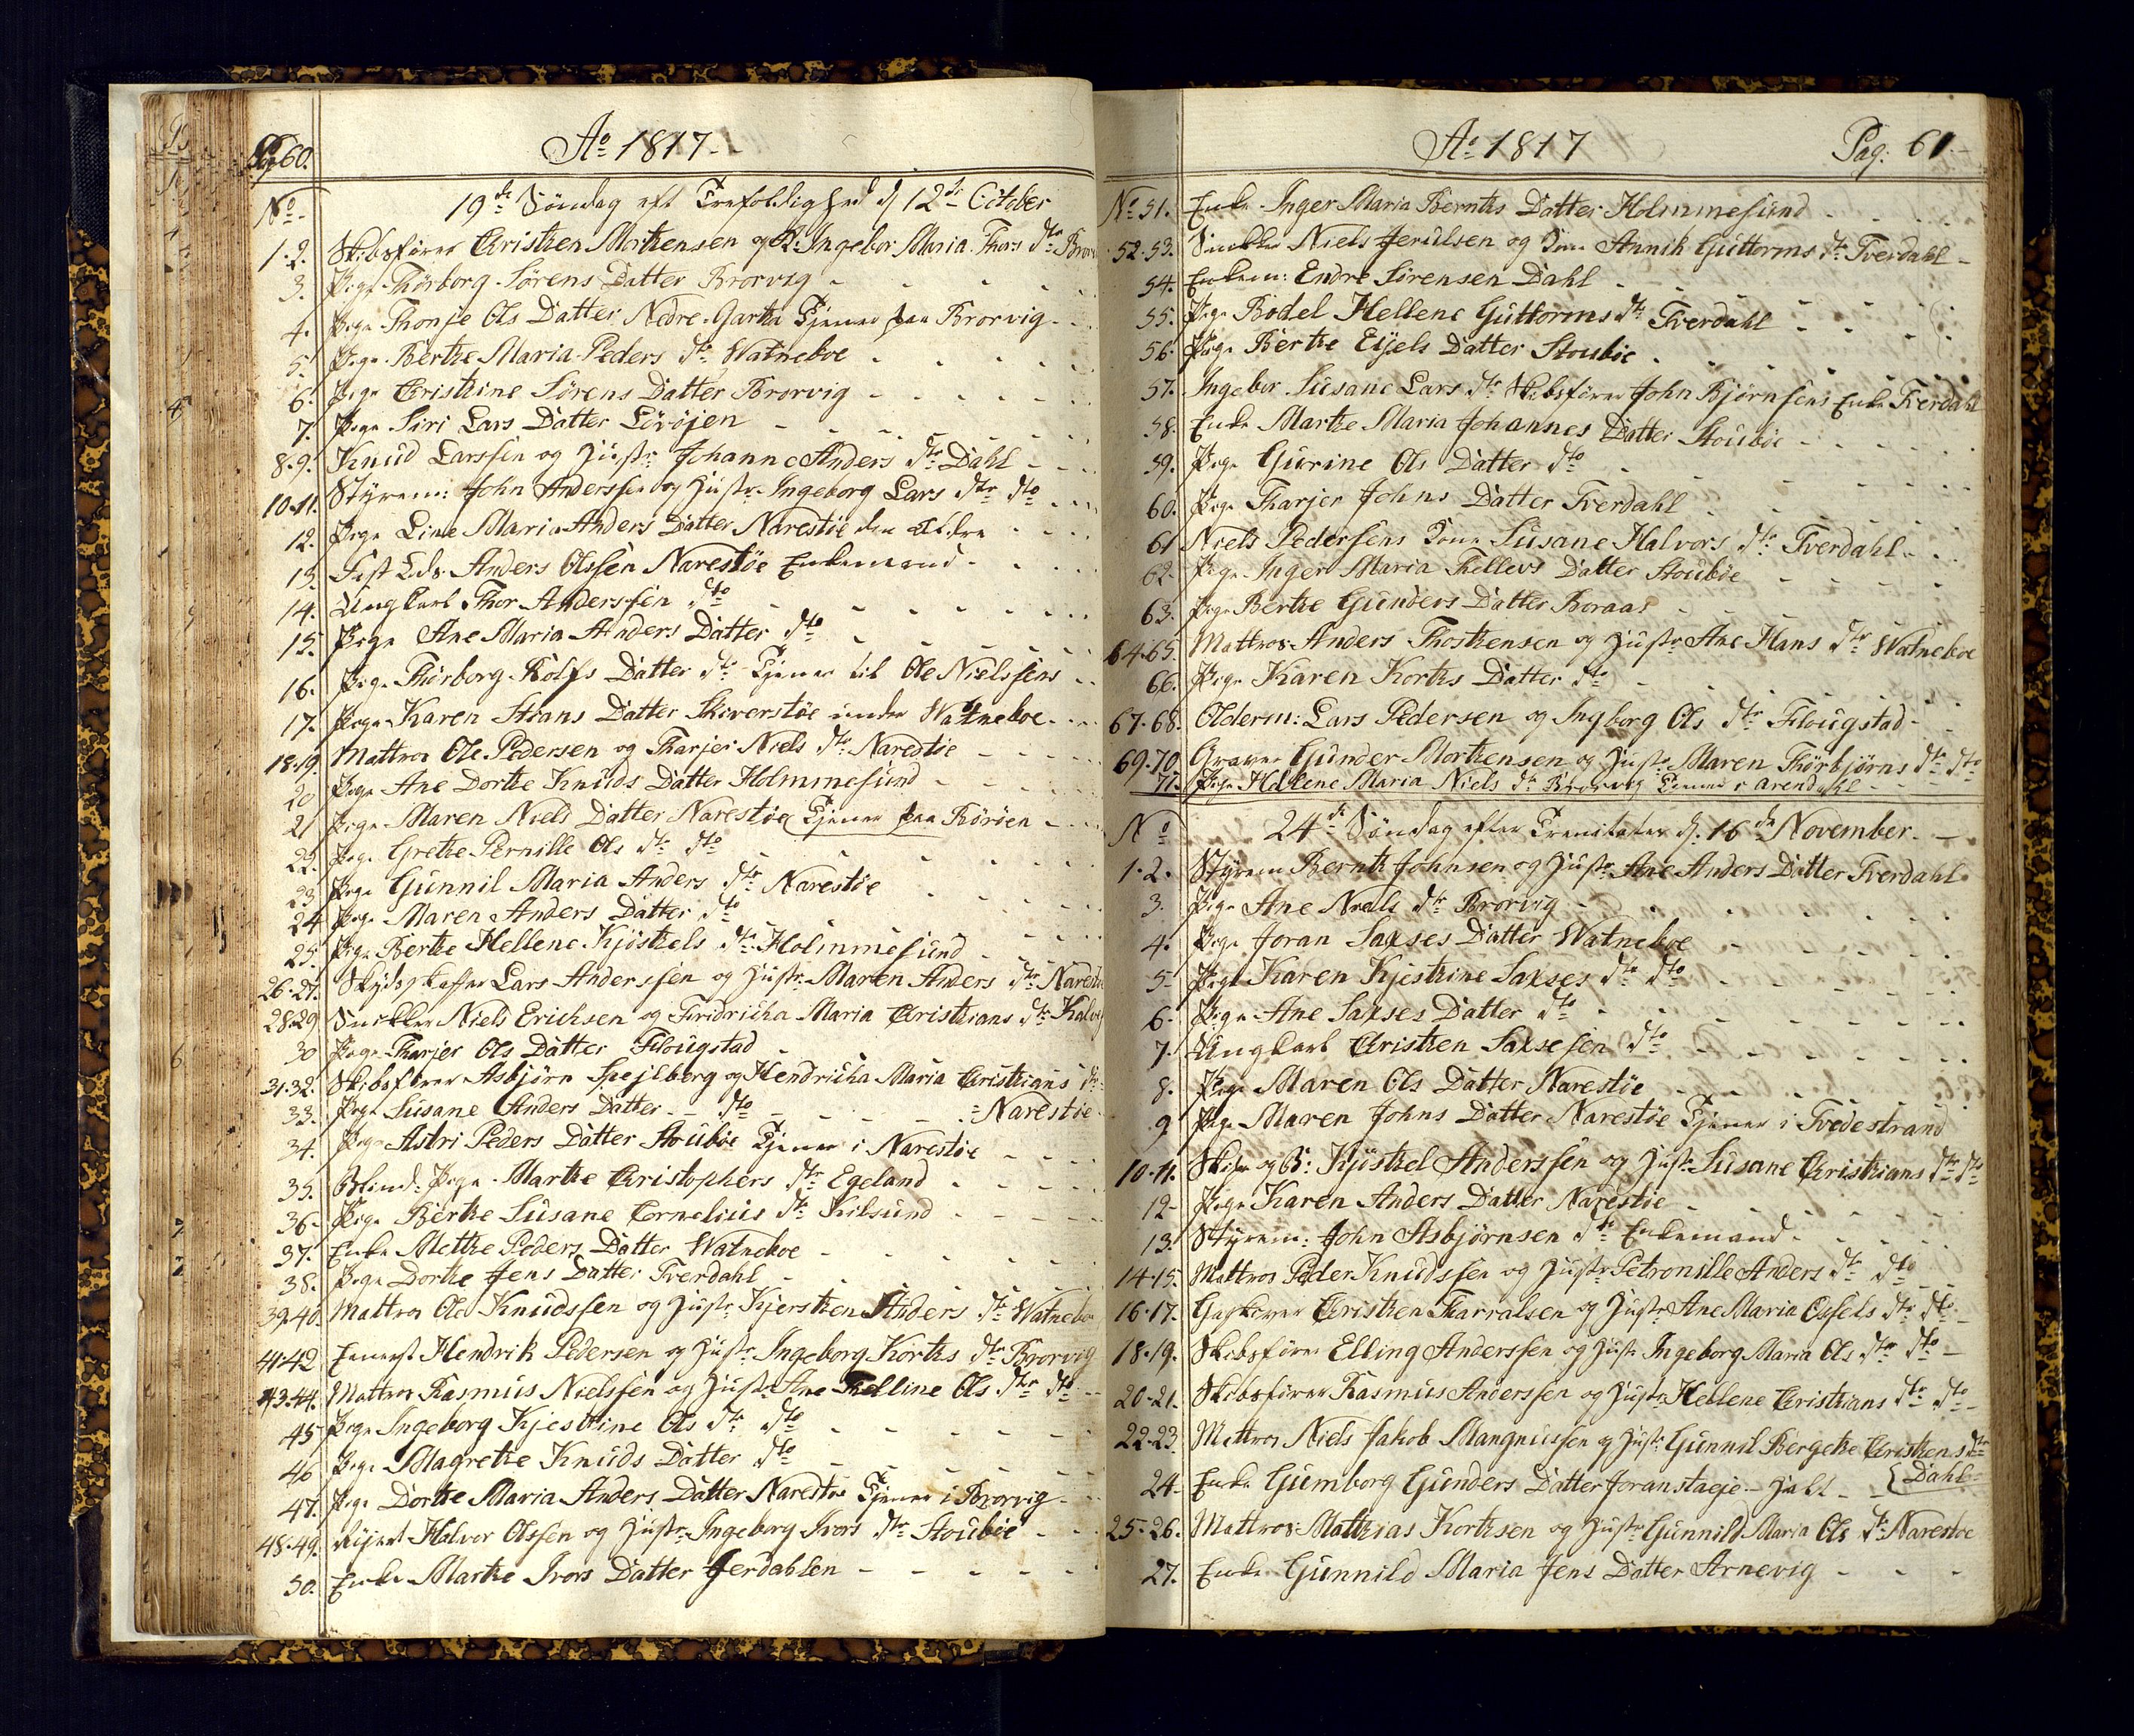 Pag 60.
Ao 1817
No
19de Søndag eft Trefoldighed d 12te October
1.2. Skibsfører Christhen Morthensen og K: Ingebor Maria Thors dtr Brorv
3. Pige Thorborg Sørens Datter Brorvig
4. Pige Thonje Ols Datter Nedre Gartha Tjener paa Brorvig
5. Pige Berthe Maria Peders dtr Watneboe
6. Pige Christhine Sørens Datter Brorvig
7. Pige Siri Lars Datter Lövöjen
8.9. Knud Larssen og Hustr. Johanne Anders dtr Dahl
10.11. Styrem: John Anderssen og Hustr. Ingeborg Lars dtr dto
12. Pige Line Maria Anders Datter Narestöe den Ældre
13. Fist Lds. Anders Olssen Narestöe Enkemand
14. Ungkarl Thor Anderssen dto
15. Pige Ane Maria Anders Datter dto
16. Pige Thorborg Rolfs Datter dto Tjener til Ole Nielssens
17. Pige Karen Stians Datter Skiverstöe under Watneboe
18.19. Mattros Ole Pedersen og Tharjer Niels dtr Narestöe
20 Pige Ane Dorthe Knuds Datter Holmmesund
21 Pige Maren Niels Datter Narestöe Tjener paa Böröen
22. Pige Grethe Pernille Ols dtr dto
23 Pige Gunnil Maria Anders dtr Narestöe
24 Pige Maren Anders Datter dto
25. Pige Berthe Hellene Kjösthels dtr Holmmesund
26.27. Skydsskaffer Lars Anderssen og Hustr. Maren Anders dtr Narest
28.29 Snikker Niels Erichsen og Fridricha Maria Christhians dtr Kalv
30 Pige Tharjer Ols Datter Flougstad
31.32. Skibsfører Asbjörn Spejlberg og Hendricha Maria Christhians dtr
33. Pige Susane Anders Datter dto = Narestöe
34. Pige Astri Peders Datter Stouböe Tjener i Narestöe
35. Blind. Pige Marthe Christophers dtr Egeland
36. Pige Berthe Susane Cornelius dtr Kilsund
37. Enke Methe Peders Datter Watneboe
38. Pige Dorthe Jens Datter Tverdahl
39.40. Mattros Ole Knudssen og Hustr. Kjersthen Anders dtr Watneboe
41.42 Hendrik Pedersen og Hustr. Ingeborg Korths dtr Brorvig
43.44. Mattros Rasmus Nielssen og Hustr. Ane Thelline Ols dtr dto
45 Pige Ingeborg Kjesthine Ols dtr dto
46 Pige Magrethe Knuds Datter dto
47. Pige Dorthe Maria Anders Datter Narestöe Tjener i Brorvig
48.49. Halvor Olssen og Hustr. Ingeborg Ivers dtr Stouböe
50. Enke Marthe Ivers Datter Jerdahlen
Ao 1817
Pag: 61.
No 51. Enke Inger Maria Bernths Datter Holmmesund
52.53. Snikker Niels Jerulsen og Kone Annih Guttorms dtr Tverdahl
54. Enkem: Endre Sörensen Dahl
55. Pige Bodel Hellene Guttorms dtr Tverdahl
56. Pige Berthe Eijels Datter Stouböe
57. Ingebor Susane Lars dtr Skibsfører John Bjørnsens Enke Tverdahl
58. Enke Marthe Maria Johannes Datter Stouböe
59. Pige Gurine Ols Datter dto
60. Pige Tharjer Johns Datter Tverdahl
61 Niels Pedersens Kone Susane Halvors dtr Tverdahl
62. Pige Inger Maria Thellevs Datter Stouböe
63. Pige Berthe Gunders Datter Boraas
64.65. Mattros Anders Thosthensen og Hustr. Ane Hans dtr Watneboe
66. Pige Karen Korths Datter dto
67.68. Olderm: Lars Pedersen og Ingborg Ols dtr Flougstad
69.70. Graver Gunder Morthensen og Hustr. Maren Thorbjørns dtr dto
71. Pige Hellene Maria Niels dtr Brorvig Tjener i Arendahl
No
24de Søndag efter Trenitates d. 16de November
1.2. Styrem Bernth Johnsen og Hustr. Ane Anders Datter Tverdahl
3. Pige Ane Niels dtr Brorvig
4. Pige Joran Saxses Datter Watneboe
5 Pige Karen Kjesthine Saxses dtr dto
6. Pige Ane Saxses Datter dto
7. Ungkarl Christhen Saxsesen dto
8. Pige Maren Ols Datter Narestöe
9 Pige Maren Johns Datter Narestöe Tjener i Tvedestrand
10.11. Skifr og B: Kjösthel Anderssen og Hustr. Susane Christhians dtr dto
12 Pige Karen Anders Datter Narestöe
13. Styrem: John Asbjørnsen dto Enkemand
14.15. Mattros Peder Knudssen og Hustr. Petronille Anders dtr dto
16.17. Christhen Tharralsen og Hustr. Ane Maria Ossels dtr dto
18.19. Skibsfører Elling Anderssen og Hustr Ingeborg Maria Ols dtr dto
20.21. Skibsfører Rasmus Anderssen og Hustr. Hellene Christhians dtr dto
22.23. Mattros Niels Jakob Mangnussen og Hustr. Gunnil Bergethe Christhens dtr
24. Enke Gumborg Gunders Datter Joranstaeje { Dahl
25.26. Mattros Matthias Korthsen og Hustr. Gunnild Maria Ols dtr Narestöe
27. Enke Gunnild Maria Jens Datter Arnevig